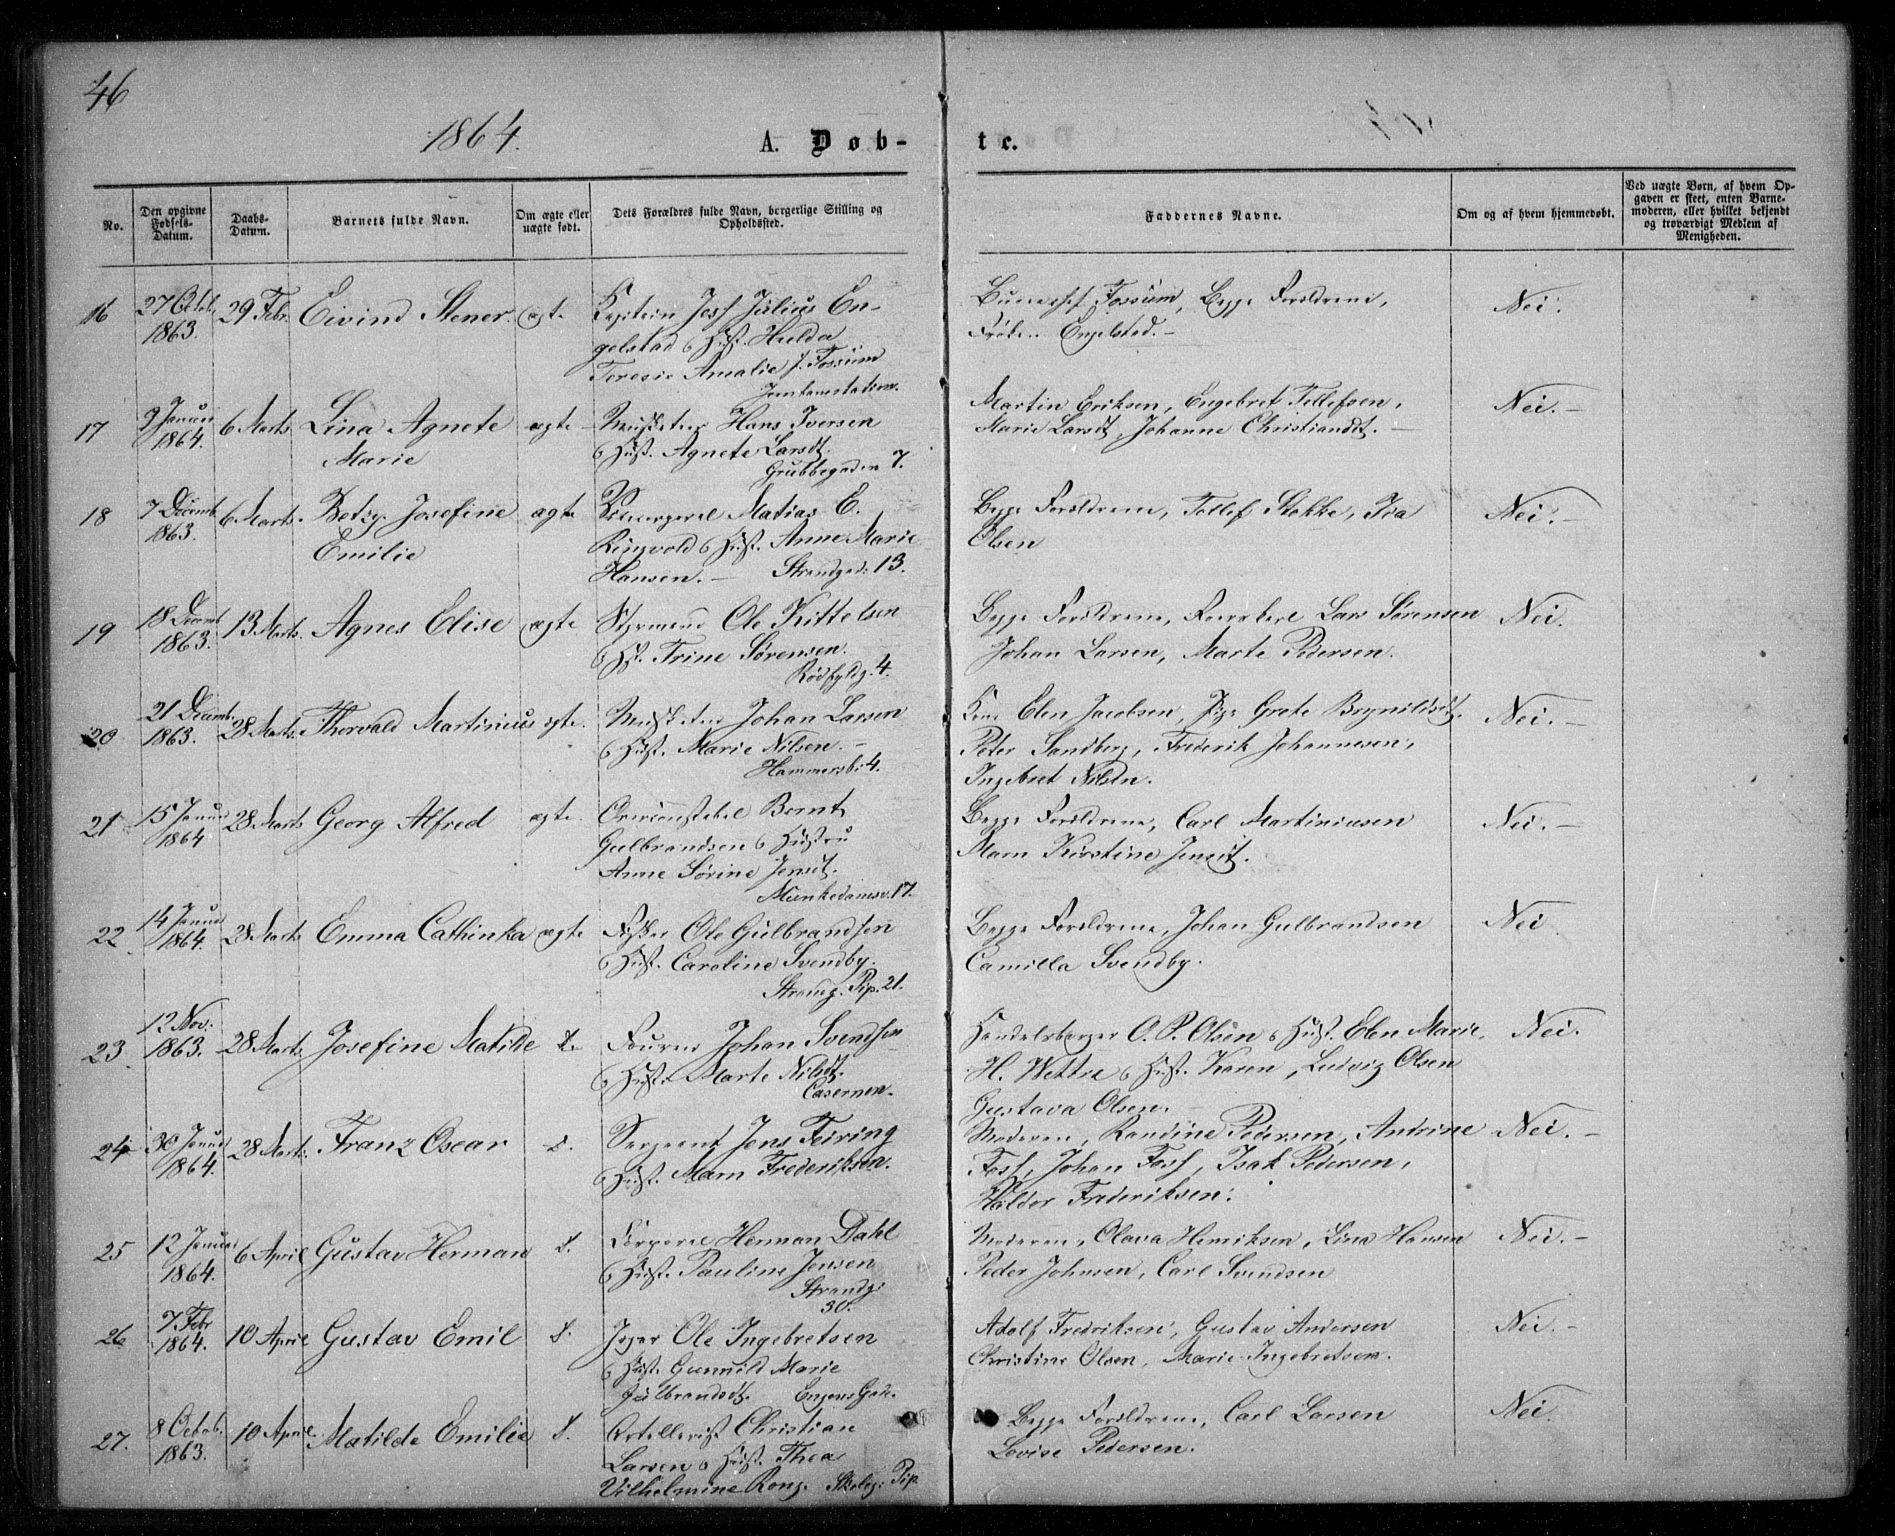 46
1864.
A. Døb-
te.
No.
Den opgivne Fødsels-Datum.
Daabs-Datum.
Barnets fulde Navn.
Om ægte eller uægte født.
Dets Forældres fulde Navn, borgerlige Stilling og Opholdssted.
Faddernes Navne.
Om og af hvem hjemmedøbt.
Ved uægte Børn, af hvem Op-
gaven er skeet, enten Barne-
moderen, eller hvilket bekjendt
og troværdigt Medlem af
Menigheden.
16
27 Octob.
1863.
29 Febr.
Eivind Stener.
ægte
Capitein Josf Julius En-
gelstad & Hust. Hulda
Teresie Amalie f. Fossum
Fossum, Begge Forældrene,
Frøken Engelstad.-
Nei.
17
9 Januar
1864.
6 Marts
Lina Agnete
Marie
ægte
Musketer Hans Iversen
& Hust. Agnete Larsdt.
Grubbegaden 7.
Martin Eriksen, Engebret Tellefsen,
Marie Larsdt, Johanne Christiansdt.-
Nei.-
18
7 Decemb.
1863.
6 Marts.
Betzy Josefine
Emilie
ægte
Matias E.
Ringvold & Hust. Anne Marie
Hansen.- Strandgd. 13.
Begge Forældrene, Tellef Stokke, Pia
Olsen
Nei.-
19
18 Decemb.
1863.
13 Marts.
Agnes Elise
ægte
Styrmand Ole Kittelsen
& Hst. Trine Sørensen.
Rødfyldg. 4.
Begge Forældrene, Lars Sørensen
Johan Larsen, Marte Pedersen.
Nei.
20
21 Decemb.
1863.
28 Marts
Thorvald Martinius
ægte.
Musketer Johan Larsen
& Hust. Marie Nilsen.-
Hammersb. 4.
Kone Elen Jacobsen, Pige Grete Brynildsdt.
Peter Sandberg, Frederik Johannesen,
Ingebret Nilsen.
Nei.-
21
15 Januar
1864
28 Marts
Georg Alfred
ægte.
Bernt
Gulbrandsen & Hustru
Anne Sørine Jensdt.
Munkedamsv. 17.
Begge Forældrene, Carl Martiniusen
Maren Kirstine Jensdt.
Nei.-
22
14 Januar
1864.
28 Marts
Emma Cathinka
ægte
Fisker Ole Gulbrandsen
& Hust. Caroline Svendby.
Strandg. Pip. 21.
Begge Forældrene, Johan Gulbrandsen
Camilla Svendby.
Nei
23
12 Nov.
1863.
28 Marts
Josefine Matilde
d.
Fourer Johan Svendsen
& Hust. Marte Nilsdt.
Casernen.
Handelsborger O. P. Olsen & Hust. Elen Marie,
H. Wettre & Hust. Karen, Ludvig Olsen
Gustava Olsen.
Nei.
24
30 Januar
1864.
28 Marts.
Franz Oscar
d.
Sergeant Jens Feiring
& Hust. Maren Frederiksen.
Moderen, Randine Pedersen, Andrine
Foss, Johan Foss, Isak Pedersen,
Haldor Frederiksen.
Nei.-
25
12 Januar
1864.
6 April
Gustav Herman
d.
Corporal Herman Dahl
& Hust. Pauline Jensen
Strandg.
30.
Moderen, Olava Henriksen, Lina Hansen
Peder Johnsen, Carl Svendsen
Nei.-
26
7 Febr
1864.
10 April
Gustav Emil
d.
Jæger Ole Ingebretsen
& Hust. Gunnild Marie
Gulbrandsdt. Engens Gade.
Adolf Fredriksen, Gustav Andersen
Christine Olsen, Marie Ingebretsen.
Nei.-
27.
8 Octob.
1863.
10 April
Matilde Emilie
d.
Artillerist Christian
Larsen & Hust. Thea
Vilhelmine Rong. Skoleg. Pip.
Begge Forældrene, Carl Larsen
Lovise Pedersen.
Nei.